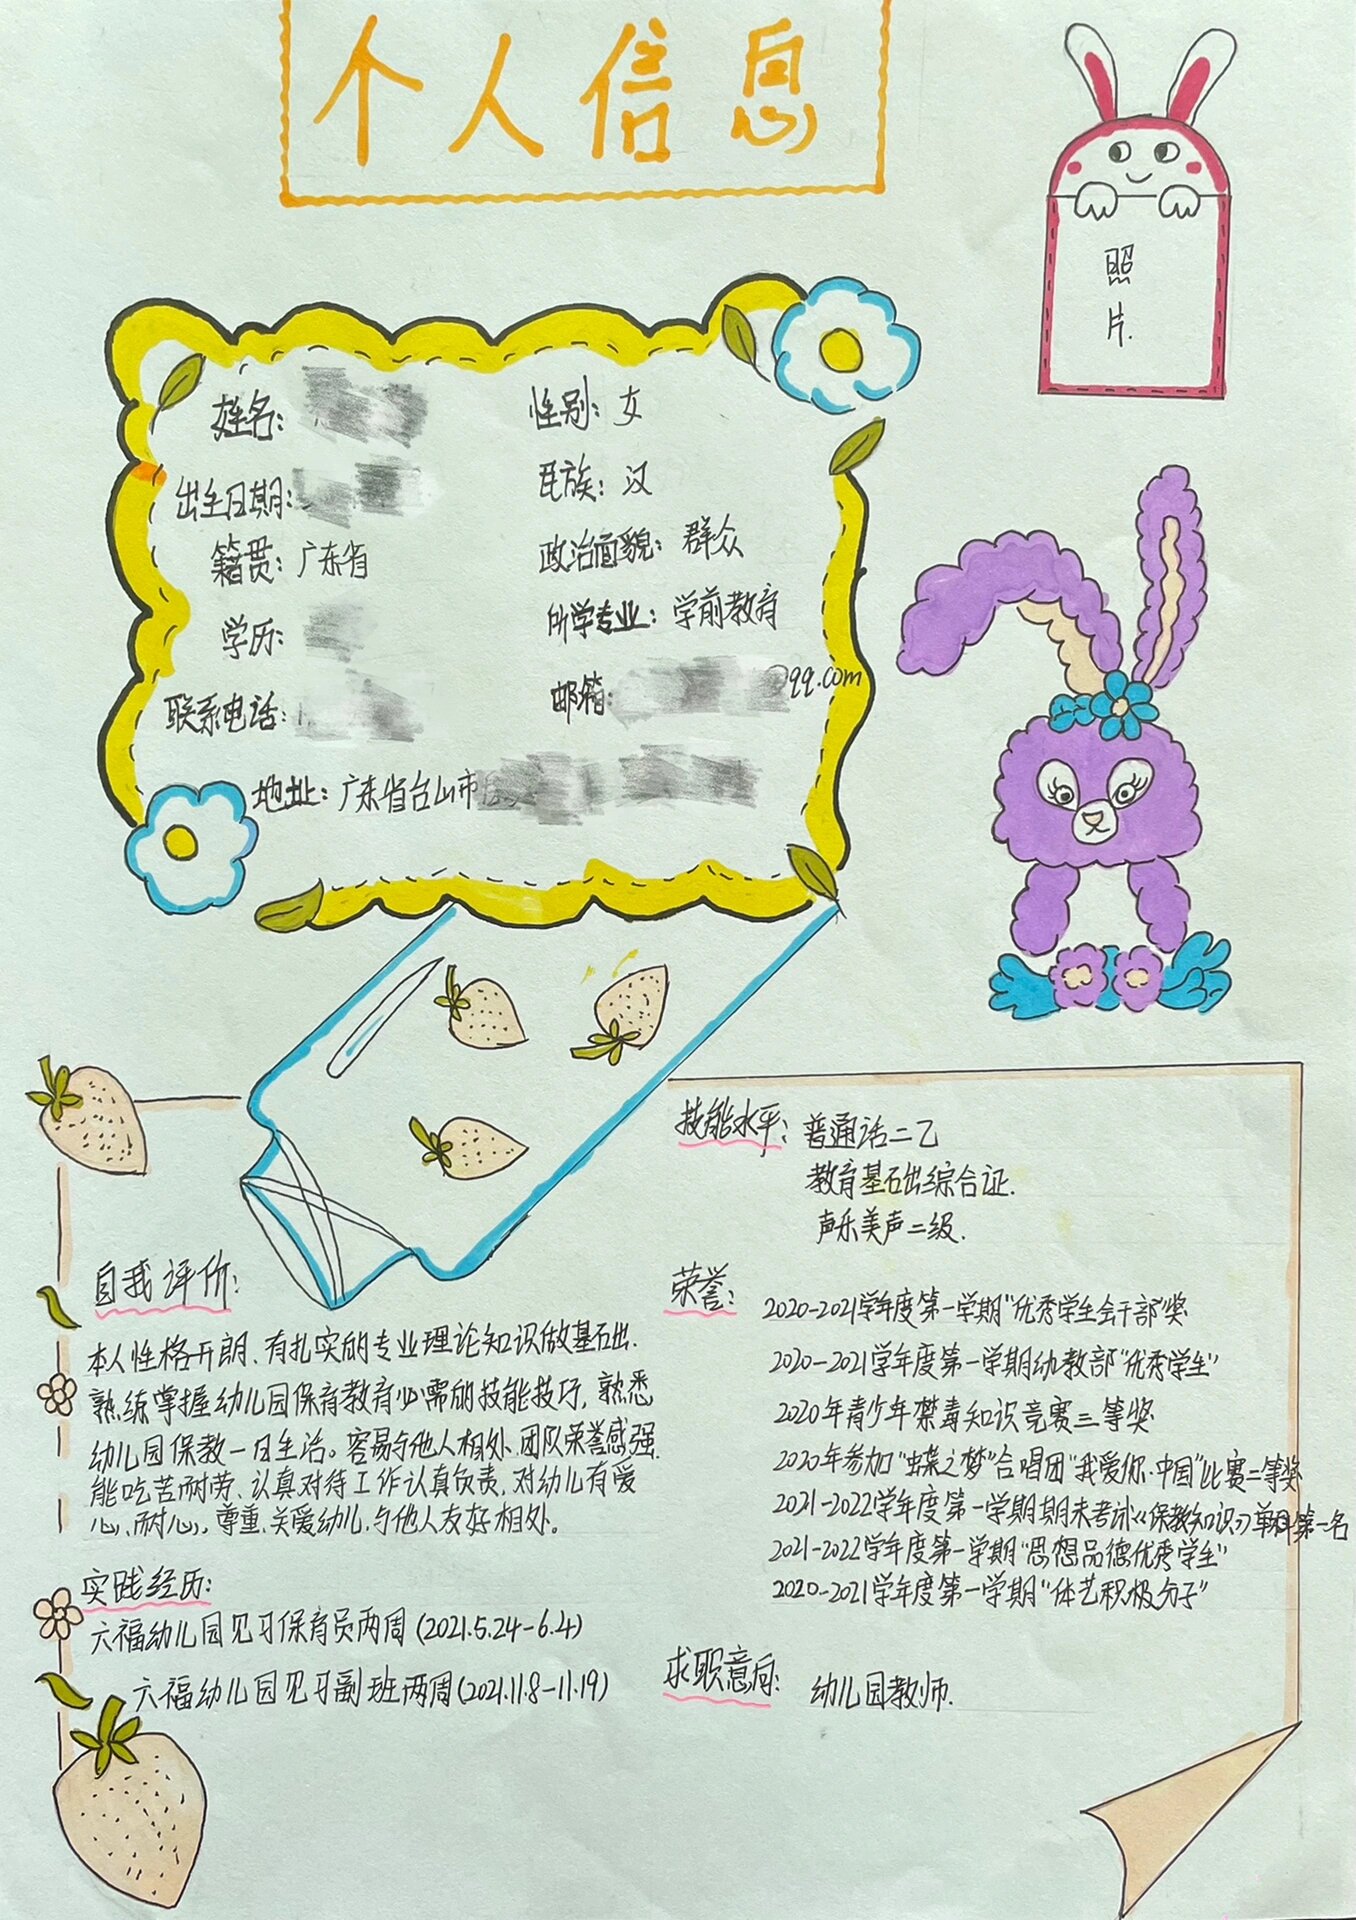 个人信息
照
片.
姓名:
性别: 女
出生日期:
民族: 汉
籍贯: 广东省
政治面貌: 群众
学历:
所学专业: 学前教育
联系电话:
邮箱: @qq.com
地址: 广东省台山市
技能水平: 普通话二乙
教育基础综合证.
声乐美声二级.
自我评价:
本人性格开朗、有扎实的专业理论知识做基础.
熟练掌握幼儿园保育教育必需的技能技巧, 熟悉
幼儿园保教一日生活。容易与他人相处、团队荣誉感强.
能吃苦耐劳、认真对待工作认真负责, 对幼儿有爱
心、耐心, 尊重、关爱幼儿, 与他人友好相处。
实践经历:
六福幼儿园见习保育员两周 (2021.5.24-6.4)
六福幼儿园见习副班两周 (2021.11.8-11.19)
荣誉:
2020-2021学年度第一学期"优秀学生会干部"奖
2020-2021学年度第一学期幼教部"优秀学生"
2020年青少年禁毒知识竞赛三等奖
2020年参加"蝶之梦"合唱团"我爱你·中国"比赛二等奖
2021-2022学年度第一学期期末考试《保教知识》单科第一名
2021-2022学年度第一学期"思想品德优秀学生"
2020-2021学年度第一学期"体艺积极分子"
求职意向: 幼儿园教师.